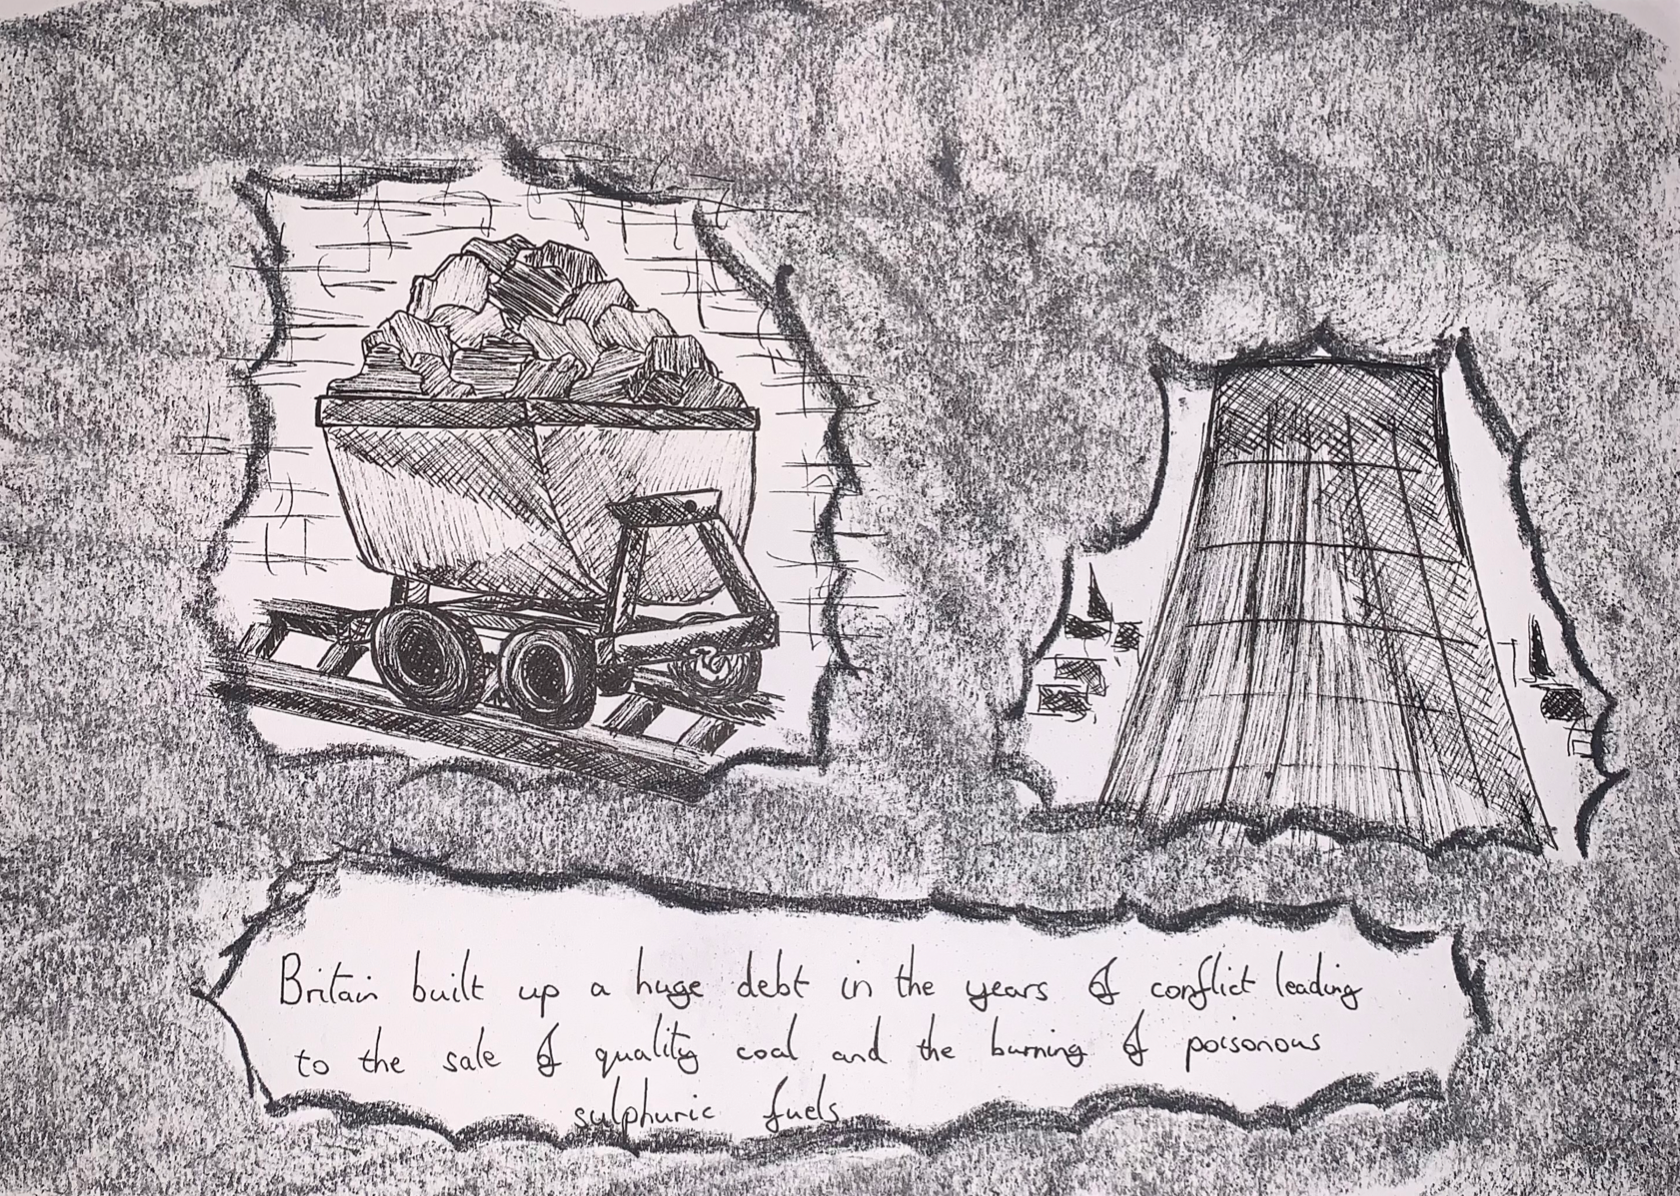 Britain built up a huge debt in the years of conflict leading
to the sale of quality coal and the burning of poisonous
sulphuric fuels